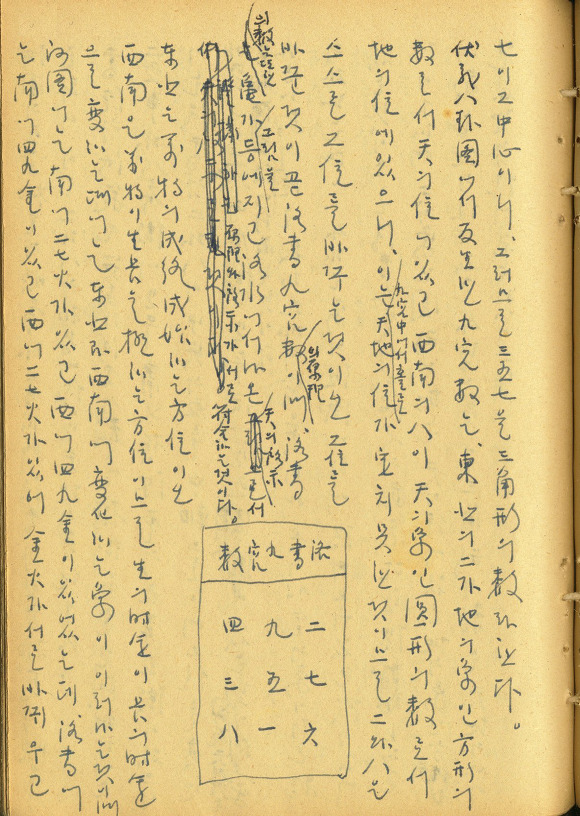 七이 그 中心이니, 그러므로 三五七은 三角形의 數라 한다。
伏羲八卦圖에서 反生한 九宮數는, 東北의 二가 地의 象인 方形의
數로서 天의 位에 있고 西南의 八이 天의 象인 圓形의 數로서
地의 位에 있으니, 이는 九宮中에서 홀로 天地의 位가 定치 못한 것이므로 二와 八은
스스로 그 位를 바꾸는 것이오 그 位를
바꾼 것이 곧 洛書九宮數이며, 洛書
의 數는 또한 龜가 등에 지고 洛水에서 나온 그림을
天의 啓示 로서
의 原理
符合하는 것이다。
東北은 萬物의 成終成始하는 方位이오
西南은 萬物이 生長을 極하는 方位이므로 生의 時運이 長의 時運
으로 變하는 때에는 東北과 西南에 變化하는 象이 이러나는 것이며
河圖에는 南에 二七火가 있고 西에 四九金이 있었는데 洛書에
는 南에 四九金이 있고 西에 二七火가 있어 金火가 서로 바뀌우고
洛書九宮數
二七六
九五一
四三八